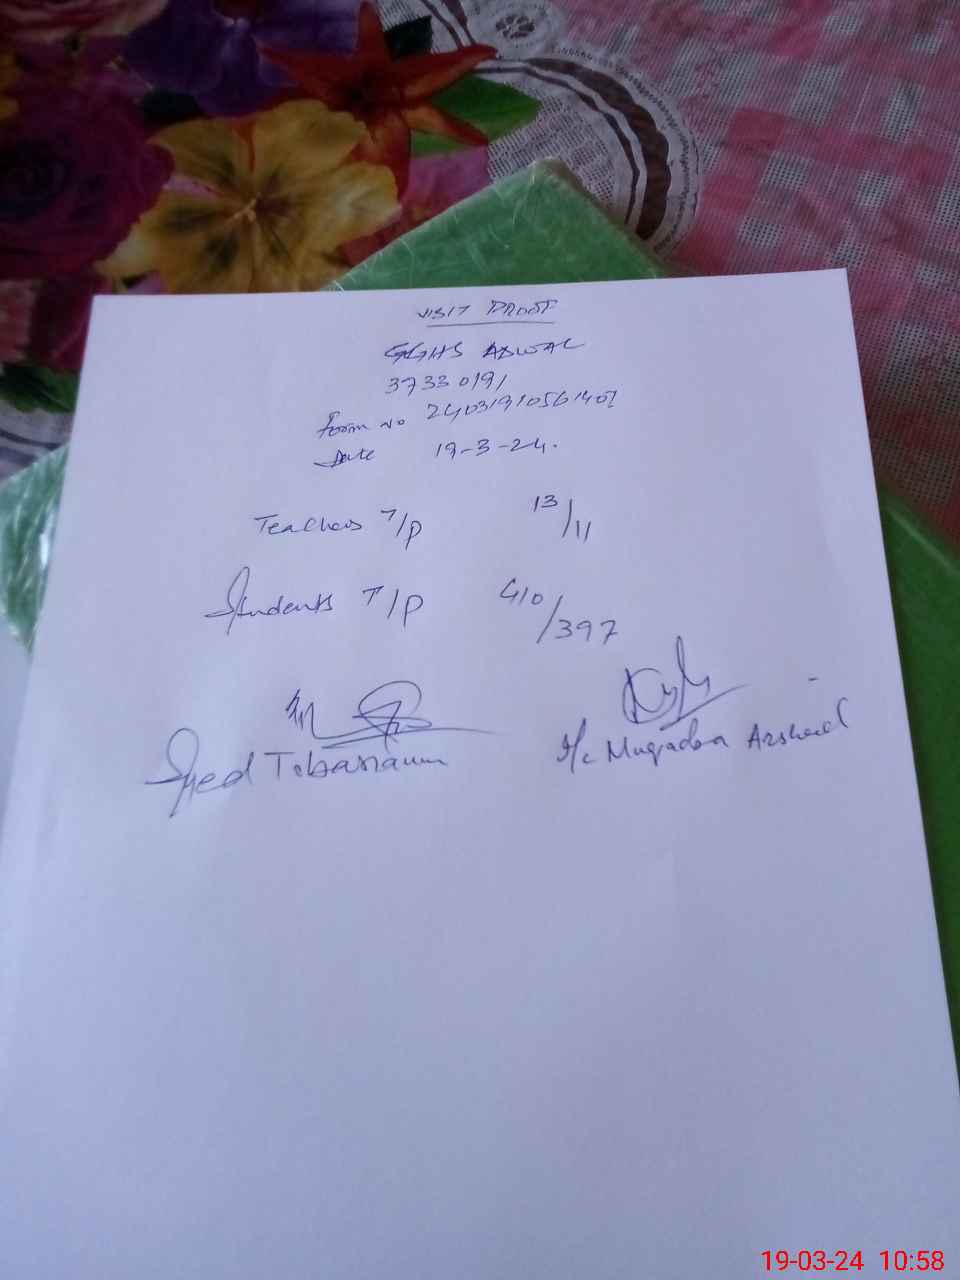 VISIT PROOF
GGHS ADWAL
37330191
Form No 24031910561401
Date 19-3-24.
Teachers T/P 13/11
Students T/P 410/397
Syed Tabasaum
I/c Muqadsa Arsheed
19-03-24 10:58